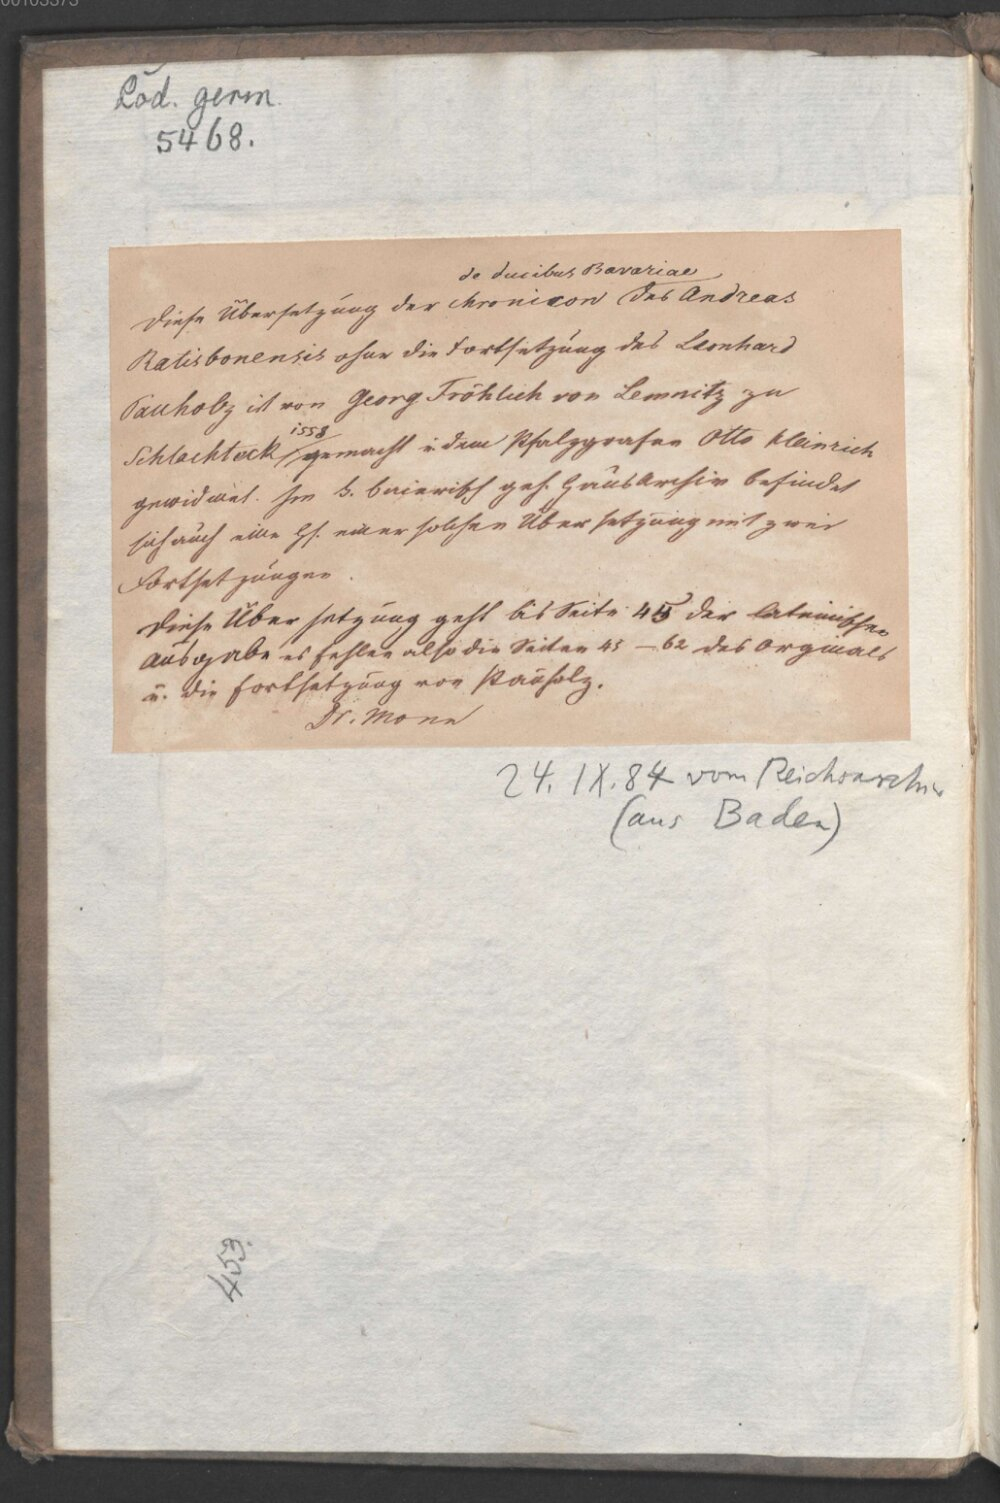 00103373
Cod. germ.
5468.
de ducibus Bavariae
Diese Übersetzung der chronicon des Andreas
Ratisbonensis ohne die Fortsetzung des Leonhard
Pauholz ist von Georg Fröhlich von Lemnitz zu
Schlachteck 1558 gemacht u. dem Pfalzgrafen Otto Heinrich
gewidmet. Im k. baierisch geh. HausArchiv befindet
sich auch eine Hs. einer solchen Übersetzung mit zwei
Fortsetzungen.
Diese Übersetzung geht bis Seite 45 der lateinischen
Ausgabe es fehlen also die Seiten 45 – 62 des Orginals
u. die Fortsetzung von Pauholz.
Dr. Mone
24. IX. 84 vom Reichsarchiv
(aus Baden)
453.